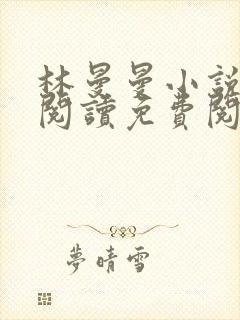 林曼曼小說
閱讀免費閱
夢晴雪